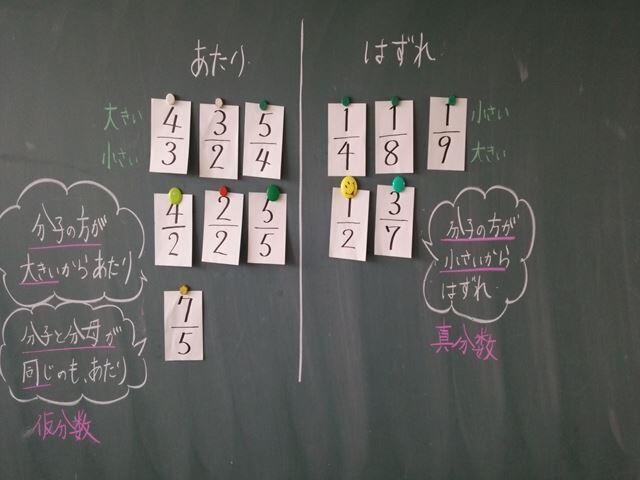 あたり
はずれ
大きい
小さい
4/3
3/2
5/4
4/2
2/2
5/5
7/5
分子の方が
大きいからあたり
分子と分母が
同じのも、あたり
仮分数
1/4
1/8
1/9
小さい
大きい
1/2
3/7
分子の方が
小さいから
はずれ
真分数